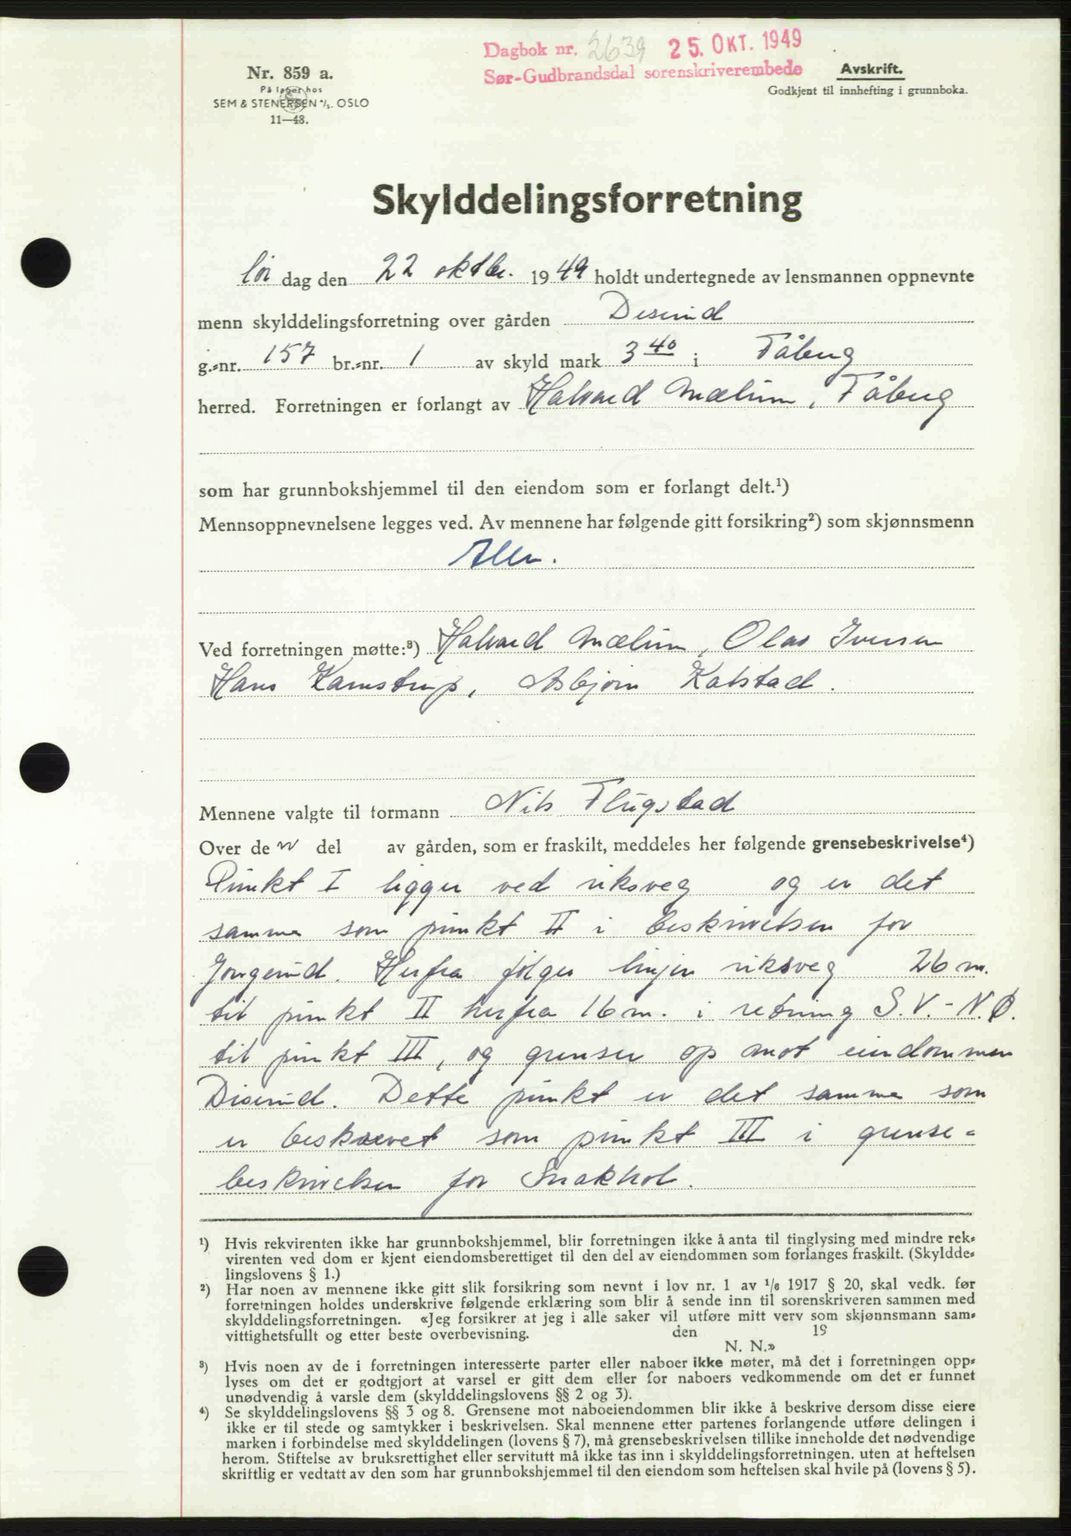 Dagbok nr. 2639 25. OKT. 1949
Sør-Gudbrandsdal sorenskriverembede
Nr. 859 a.
På lager hos
SEM & STENERSEN A/S. OSLO
11—48.
Avskrift.
Godkjent til innhefting i grunnboka.
Skylddelingsforretning
lør dag den 22 oktbr. 1949 holdt undertegnede av lensmannen oppnevnte
menn skylddelingsforretning over gården Diserud
g.-nr. 157 br.-nr. 1 av skyld mark 3 40 i Fåberg
herred. Forretningen er forlangt av Halvard Mælum, Fåberg
som har grunnbokshjemmel til den eiendom som er forlangt delt.¹)
Mennsoppnevnelsene legges ved. Av mennene har følgende gitt forsikring²) som skjønnsmenn
Alle.
Ved forretningen møtte:³) Halvard Mælum, Olav Iversen
Hans Kamstrup, Asbjørn Kalstad.
Mennene valgte til formann Nils Flugstad
Over de n del av gården, som er fraskilt, meddeles her følgende grensebeskrivelse⁴)
Punkt I ligger ved riksveg og er det
samme som punkt II i beskrivelsen for
Jorgerud. Herfra følger linjen riksveg 26 m.
til punkt II herfra 16 m. i retning S.V.-N.Ø.
til punkt III, og grenser op mot eiendommen
Diserud. Dette punkt er det samme som
er beskrevet som punkt III i grense-
beskrivelsen for Snakhol.
¹) Hvis rekvirenten ikke har grunnbokshjemmel, blir forretningen ikke å anta til tinglysing med mindre rek-
virenten ved dom er kjent eiendomsberettiget til den del av eiendommen som forlanges fraskilt. (Skyldde-
lingslovens § 1.)
²) Har noen av mennene ikke gitt slik forsikring som nevnt i lov nr. 1 av 1/6 1917 § 20, skal vedk. før
forretningen holdes underskrive følgende erklæring som blir å sende inn til sorenskriveren sammen med
skylddelingsforretningen. «Jeg forsikrer at jeg i alle saker vil utføre mitt verv som skjønnsmann sam-
vittighetsfullt og etter beste overbevisning. den 19
N. N.»
³) Hvis noen av de i forretningen interesserte parter eller naboer ikke møter, må det i forretningen opp-
lyses om det er godtgjort at varsel er gitt dem eller for naboers vedkommende om det er funnet
unødvendig å varsle dem (skylddelingslovens §§ 2 og 3).
⁴) Se skylddelingslovens §§ 3 og 8. Grensene mot naboeiendommen blir ikke å beskrive dersom disse eiere
ikke er til stede og samtykker i beskrivelsen. Skal mennene etter partenes forlangende utføre delingen i
marken i forbindelse med skylddelingen (lovens § 7), må grensebeskrivelsen tillike inneholde det nødvendige
herom. Stiftelse av bruksrettighet eller servitutt må ikke tas inn i skylddelingsforretningen, uten at heftelsen
skriftlig er vedtatt av den som har grunnbokshjemmel til den eiendom som heftelsen skal hvile på (lovens § 5).